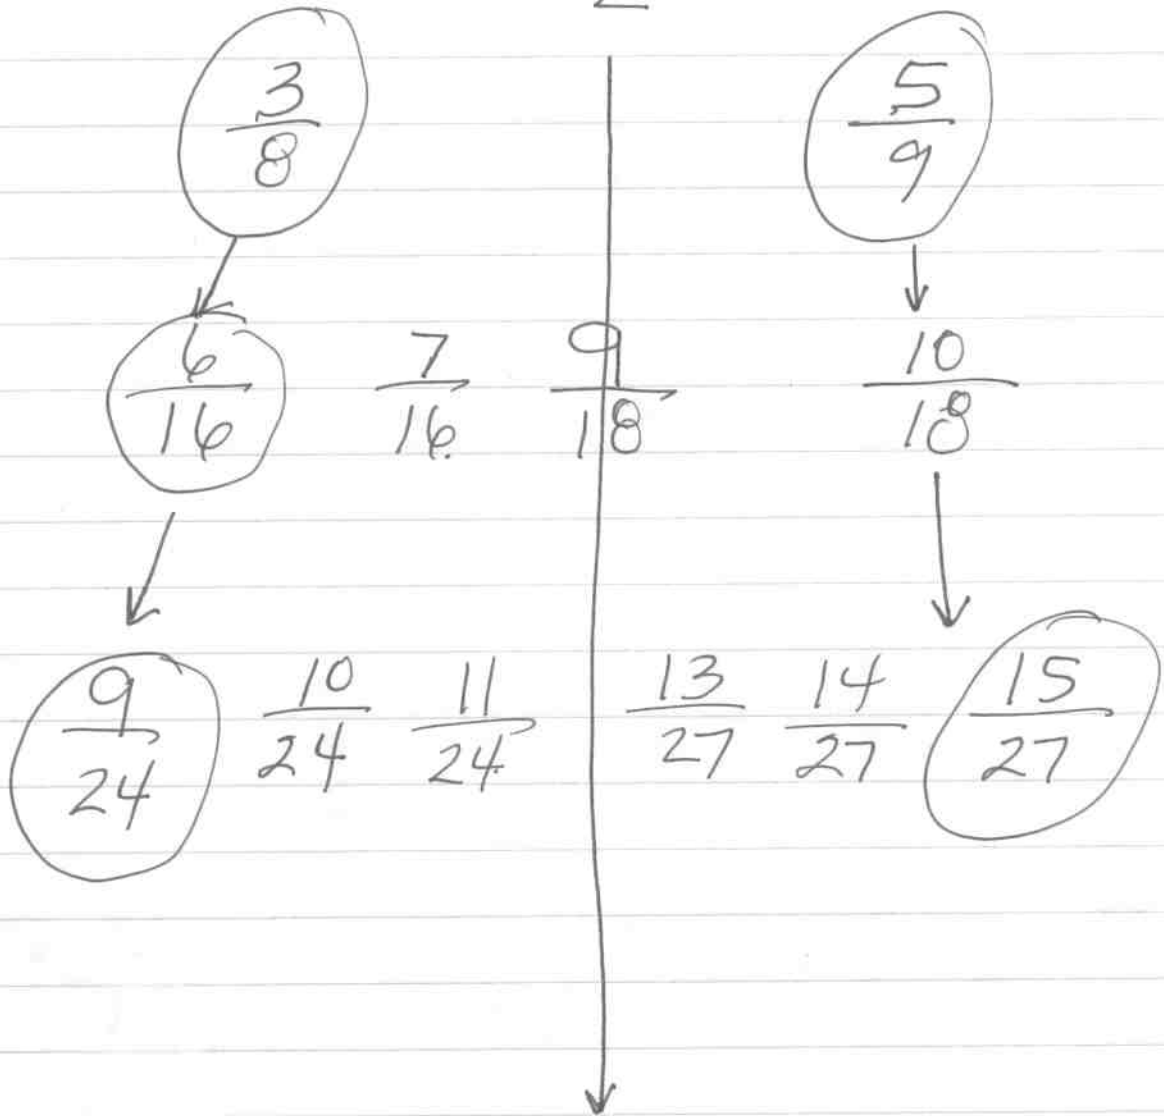 2
3/8 5/9
6/16 7/16 9/18 10/18
9/24 10/24 11/24 13/27 14/27 15/27